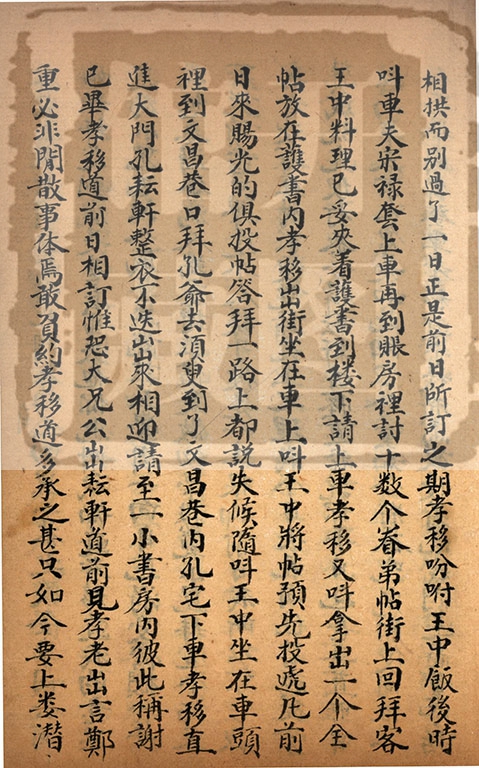 相拱而别過了一日正是前日所訂之期孝移吩咐王中飯後時
呌車夫宋禄套上車再到賬房裡討十数个眷弟帖街上回拜客
王中料理已妥夾着護書到楼下請上車孝移又呌拿出一个全
帖放在護書内孝移出街坐在車上呌王中將帖預先投遞凡前
日來賜光的俱投帖答拜一路上都説失候隨呌王中坐在車頭
裡到文昌巷口拜孔爺去須臾到了文昌巷内孔宅下車孝移直
進大門孔耘軒整衣不迭出來相迎請至一小書房内彼此稱謝
已畢孝移道前日相訂惟恐大兄公出耘軒道前見孝老出言鄭
重必非閒散事体焉敢負約孝移道多承之甚只如今要上娄潜